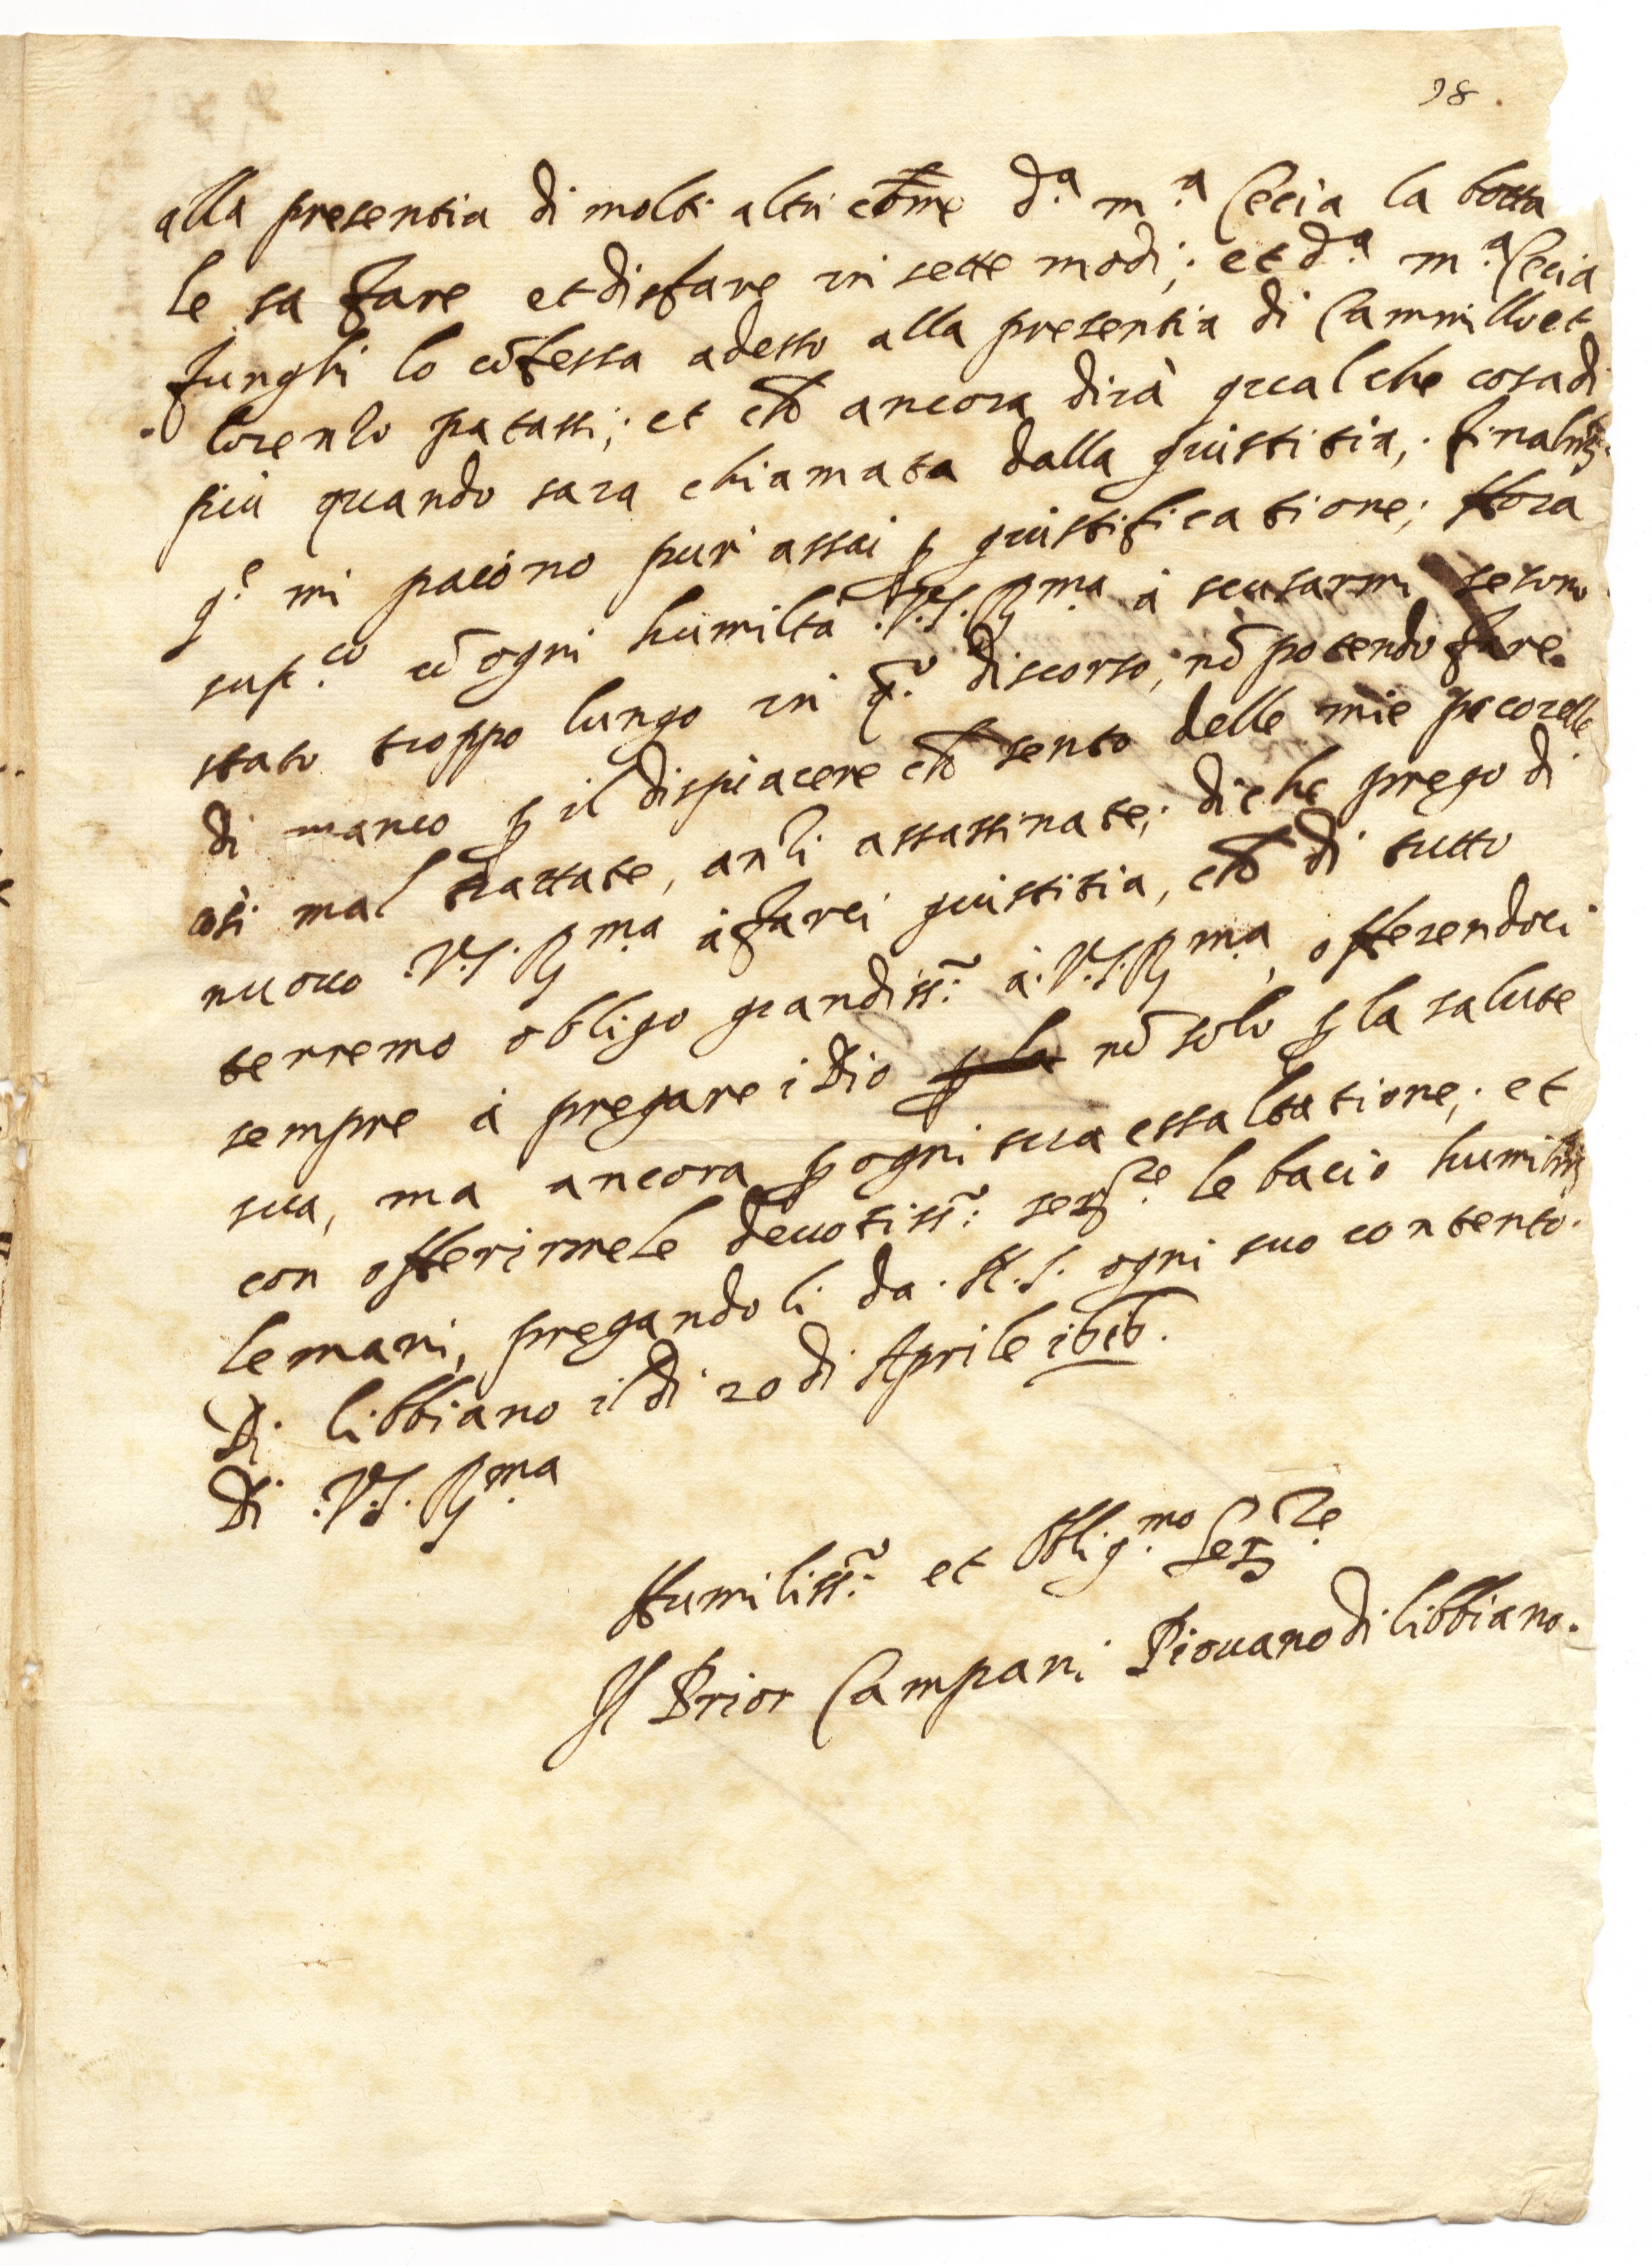 98.
alla presentia di molti altri come d.ª m.ª Cecia la botta
le sa fare et disfare in sette modi; et d.ª m.ª Cecia
funghi lo cõfessa adesso alla presentia di Cammillo et
lorenzo patassi; et ch̃ ancora dirà qual che cosa di
più quando sara chiamata dalla giustitia; finalm.
q.e mi paiono pur assai ꝑ giustificatione; Hora
sup.co cõ ogni humiltà .V.S.R.ma à scusarmi se sono
stato troppo lungo in q.o discorso; nõ potendo fare
di manco ꝑ il dispiacere ch̃ sento delle mie pecorelle
cosi mal trattate, anzi assassinate; di che prego di
nuouo .V.S.R.ma à farci giustitia, ch̃ di tutto
terremo obligo grandiss.o à .V.S.R.ma, offerendoci
sempre à pregare i Dio ꝑ la nõ solo ꝑ la salute
sua, ma ancora ꝑ ogni sua essaltatione; et
con offerirmele deuotiss.o ser.re le bacio humilm.
le mani, pregandoli da .N.S. ogni suo contento.
Di libbiano il di 20 di Aprile 1616.
Di .V.S.R.ma
Humiliss.o et Oblig.mo Ser.re
Il Prior Campani Piouano di libbiano.